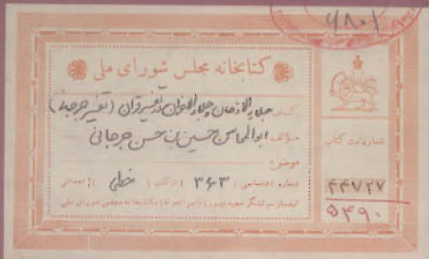 ۶۸۰۱
کتابخانه مجلس شورای ملی
کتاب جلاء الاذهان و جلاء الاحزان در تفسیر قرآن (تفسیر جرجانی)
مؤلف ابوالمحاسن حسین بن حسن جرجانی
موضوع
شماره اختصاصی (۳۶۳) از کتب ( خطی ) اهدائی
شماره ثبت کتاب
۴۴۷۲۷
۵۴۹۰